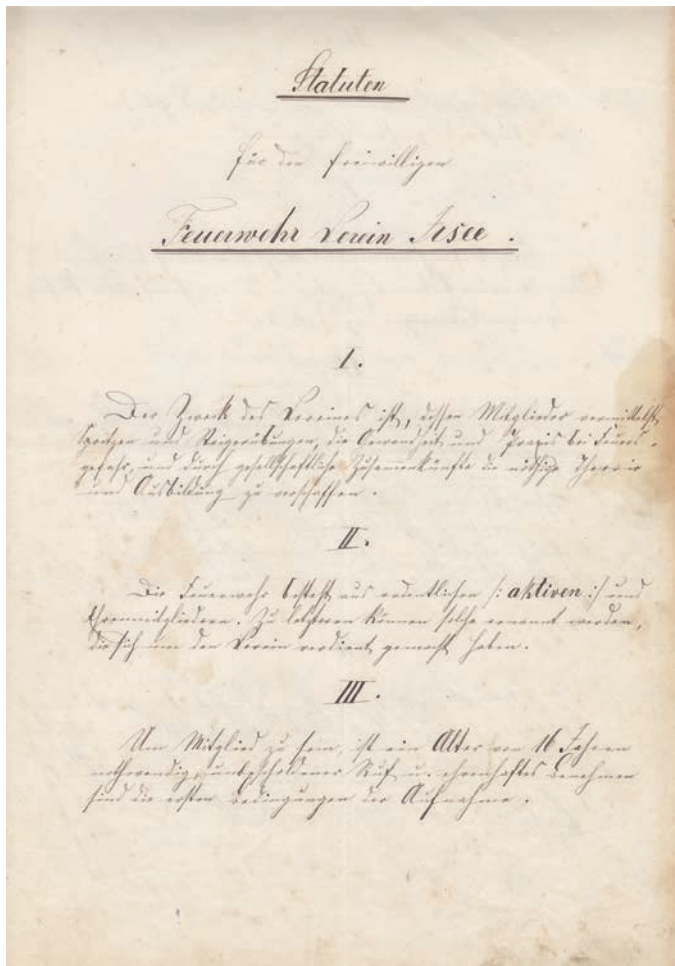 Statuten
für den freiwilligen
Feuerwehr Verein Irsee.
I.
Der Zweck des Vereines ist, dessen Mitglieder vermittelst
Spritzen und Steigerübungen, die Gewandheit und Praxis bei Feuers-
gefahr, und durch gesellschaftliche Zusammenkünfte die nöthige Theorie
und Ausbildung zu verschaffen.
II.
Die Feuerwehr besteht aus ordentlichen /: aktiven :/ und
Ehrenmitgliedern. Zu letzteren können solche ernannt werden,
die sich um den Verein verdient gemacht haben.
III.
Um Mitglied zu sein, ist ein Alter von 16 Jahren
nothwendig, unbescholdener Ruf u. ehrenhaftes Benehmen
sind die ersten Bedingungen der Aufnahme.